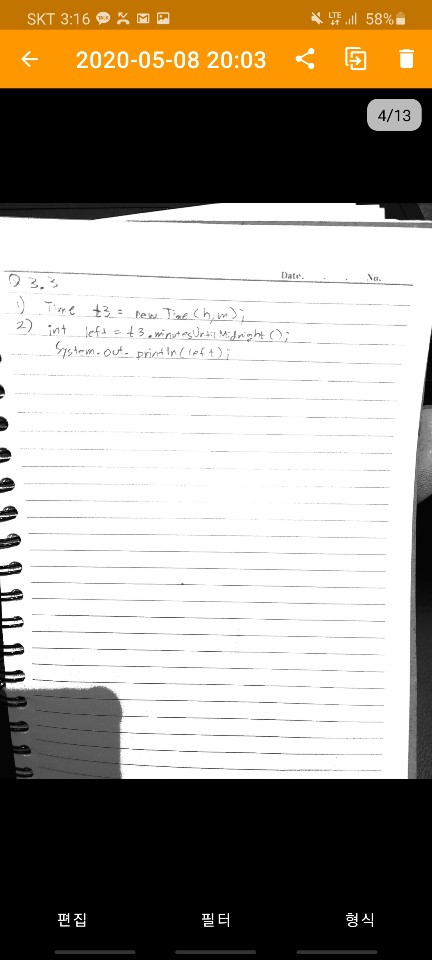 SKT 3:16
LTE
58%
2020-05-08 20:03
4/13
Date. . . No.
Q 3.3
1) Time t3 = new Time(h,m);
2) int left = t3.minutesUntilMidnight();
System.out.println(left);
편집 필터 형식